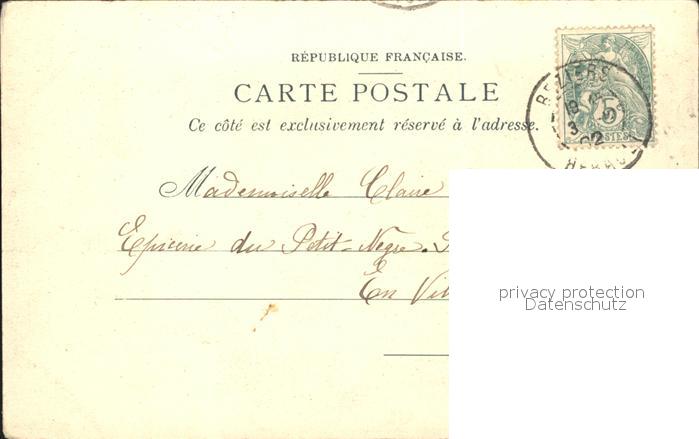 RÉPUBLIQUE FRANÇAISE.
CARTE POSTALE
Ce côté est exclusivement réservé à l'adresse.
BEZIERS
3
02
HERAULT
5
POSTES
Mademoiselle Claire
Epicerie du Petit-Negre.
En Vil
privacy protection
Datenschutz